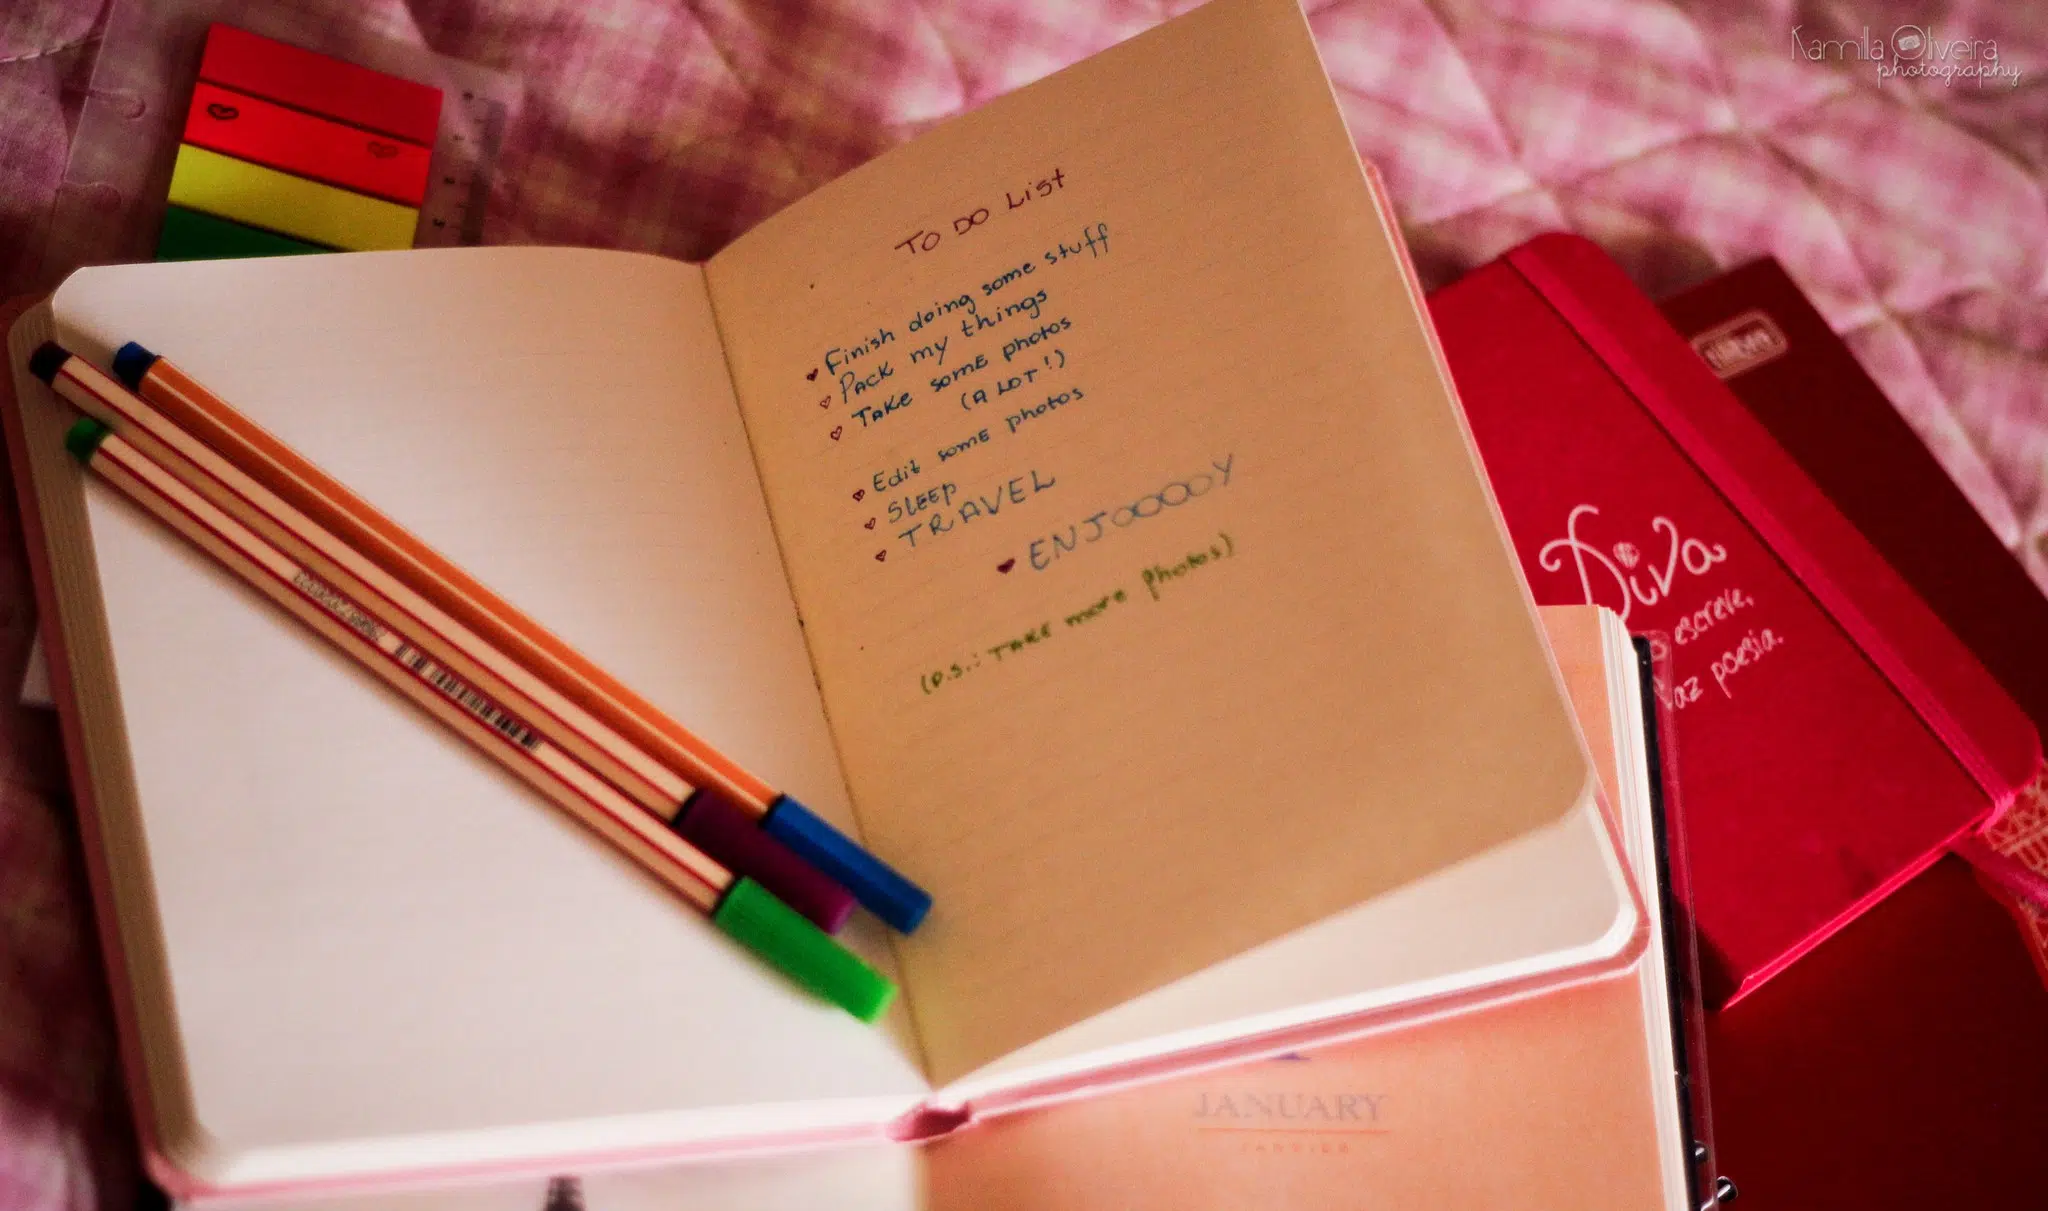 Kamilla Oliveira
photography
TO DO LIST
Finish doing some stuff
Pack my things
Take some photos
(A LOT!)
Edit some photos
SLEEP
TRAVEL
ENJOOOOY
(P.S.: TAKE more photos)
Diva
escreve,
az poesia.
JANUARY